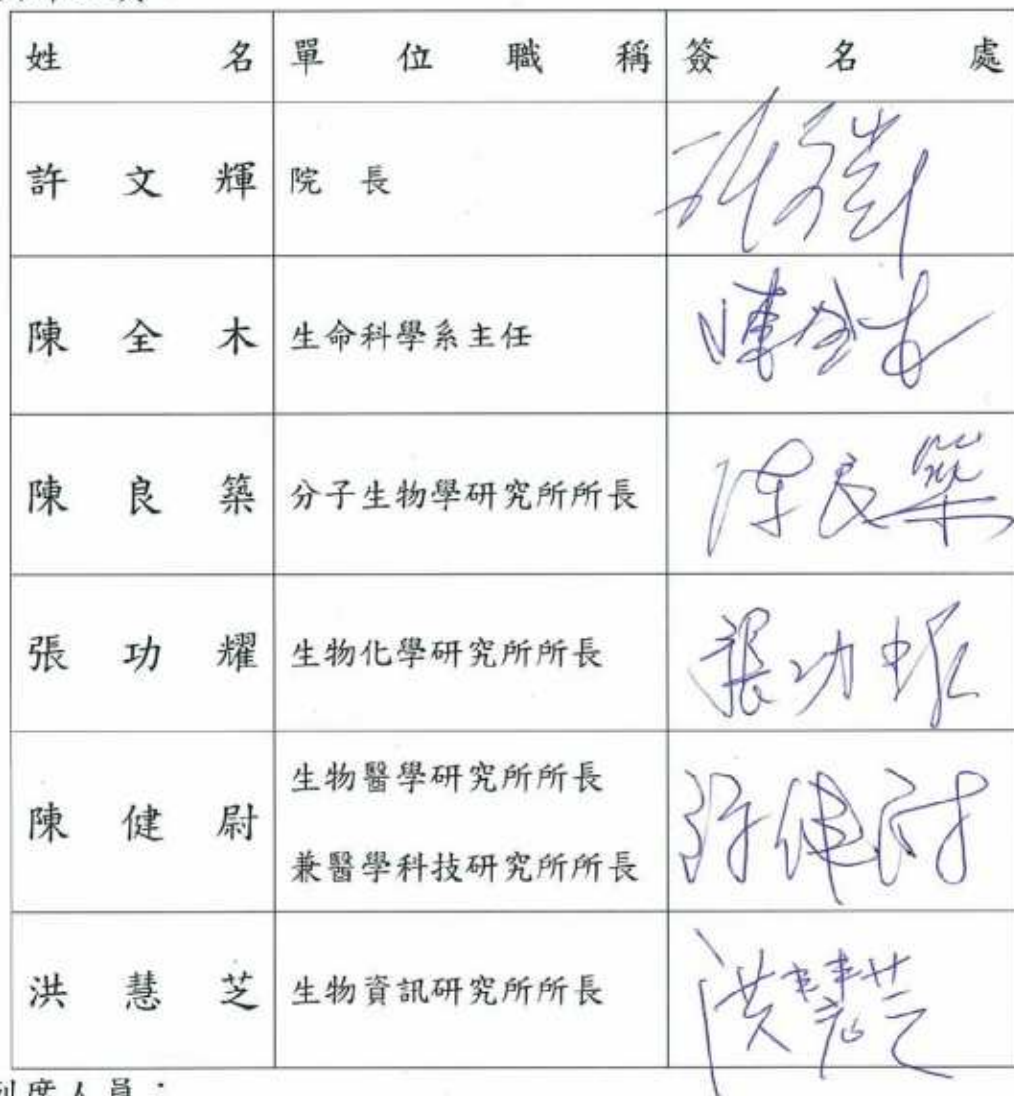 姓名 單位職稱 簽名處
許文輝 院長 許文輝
陳全木 生命科學系主任 陳全木
陳良築 分子生物學研究所所長 陳良築
張功耀 生物化學研究所所長 張功耀
陳健尉 生物醫學研究所所長
兼醫學科技研究所所長 陳健尉
洪慧芝 生物資訊研究所所長 洪慧芝
列席人員：